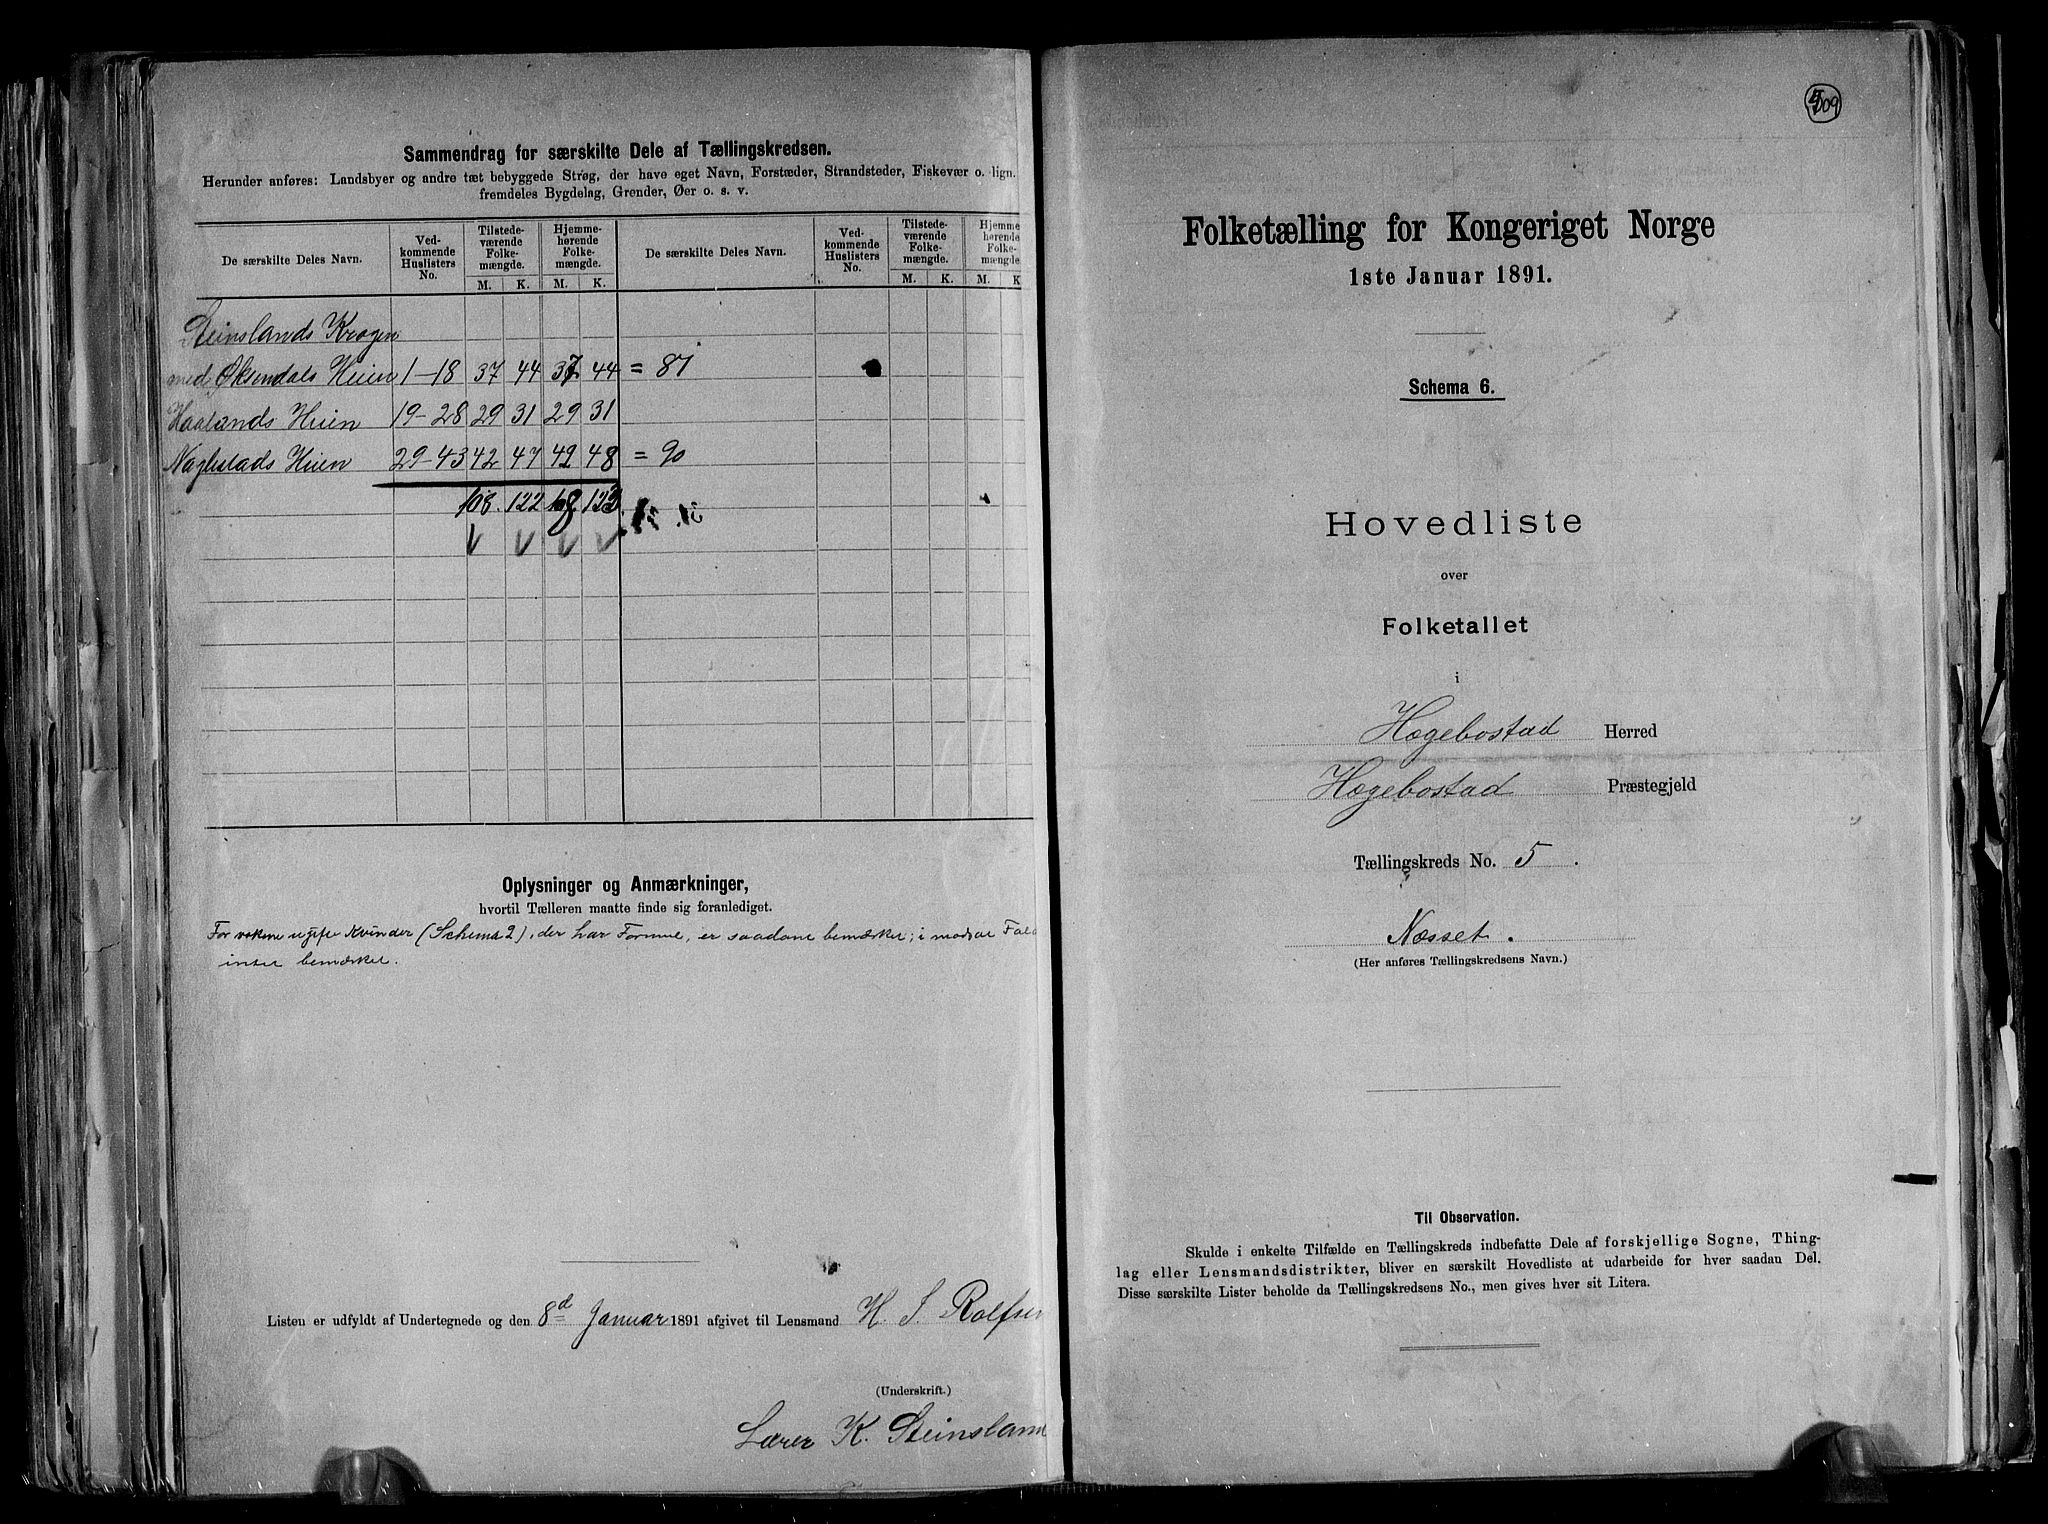 Sammendrag for særskilte Dele af Tællingskredsen.
Herunder anføres: Landsbyer og andre tæt bebyggede Strøg, der have eget Navn, Forstæder, Strandsteder, Fiskevær o. lign.
fremdeles Bygdelag, Grender, Øer o. s. v.
De særskilte Deles Navn. Ved-kommende Huslisters No. Tilstede-værende Folke-mængde. Hjemme-hørende Folke-mængde. De særskilte Deles Navn. Ved-kommende Huslisters No. Tilstede-værende Folke-mængde. Hjemme-hørende Folke-mængde.
M. K. M. K. M. K. M. K.
Steinslands Krogen
med Øksendals Heien 1-18 37 44 37 44 = 81
Haalands Heien 19-28 29 31 29 31
Naglestads Heien 29-43 42 47 42 48 = 90
108. 122 108 123
Oplysninger og Anmærkninger,
hvortil Tælleren maatte finde sig foranlediget.
For voksne ugifte Kvinder (Schema 2), der har Formue, er saadane bemærket; i modsat
intet bemærket.
Listen er udfyldt af Undertegnede og den 8d Januar 1891 afgivet til Lensmand H. S. Rolfsen
(Underskrift.)
Lærer K. Steinsland
509
Folketælling for Kongeriget Norge
1ste Januar 1891.
Schema 6.
Hovedliste
over
Folketallet
i
Hægebostad Herred
Hægebostad Præstegjeld
Tællingskreds No. 5.
Næsset.
(Her anføres Tællingskredsens Navn.)
Til Observation.
Skulde i enkelte Tilfælde en Tællingskreds indbefatte Dele af forskjellige Sogne, Thing-
lag eller Lensmandsdistrikter, bliver en særskilt Hovedliste at udarbeide for hver saadan Del.
Disse særskilte Lister beholde da Tællingskredsens No., men gives hver sit Litera.